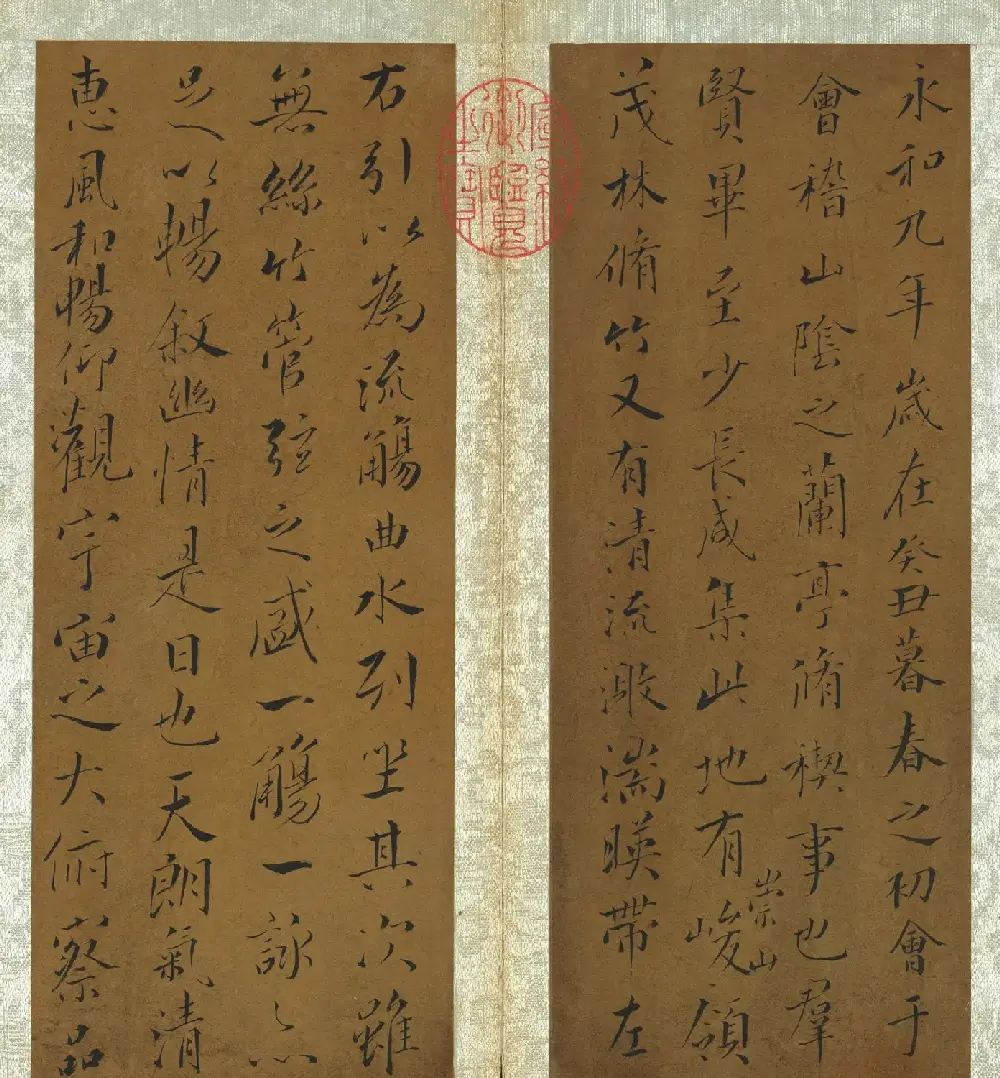 永和九年歲在癸丑暮春之初會于
會稽山陰之蘭亭脩禊事也羣
賢畢至少長咸集此地有崇山峻領
茂林脩竹又有清流激湍暎帶左
右引以為流觴曲水列坐其次雖
無絲竹管弦之盛一觴一詠亦
足以暢敘幽情是日也天朗氣清
惠風和暢仰觀宇宙之大俯察品